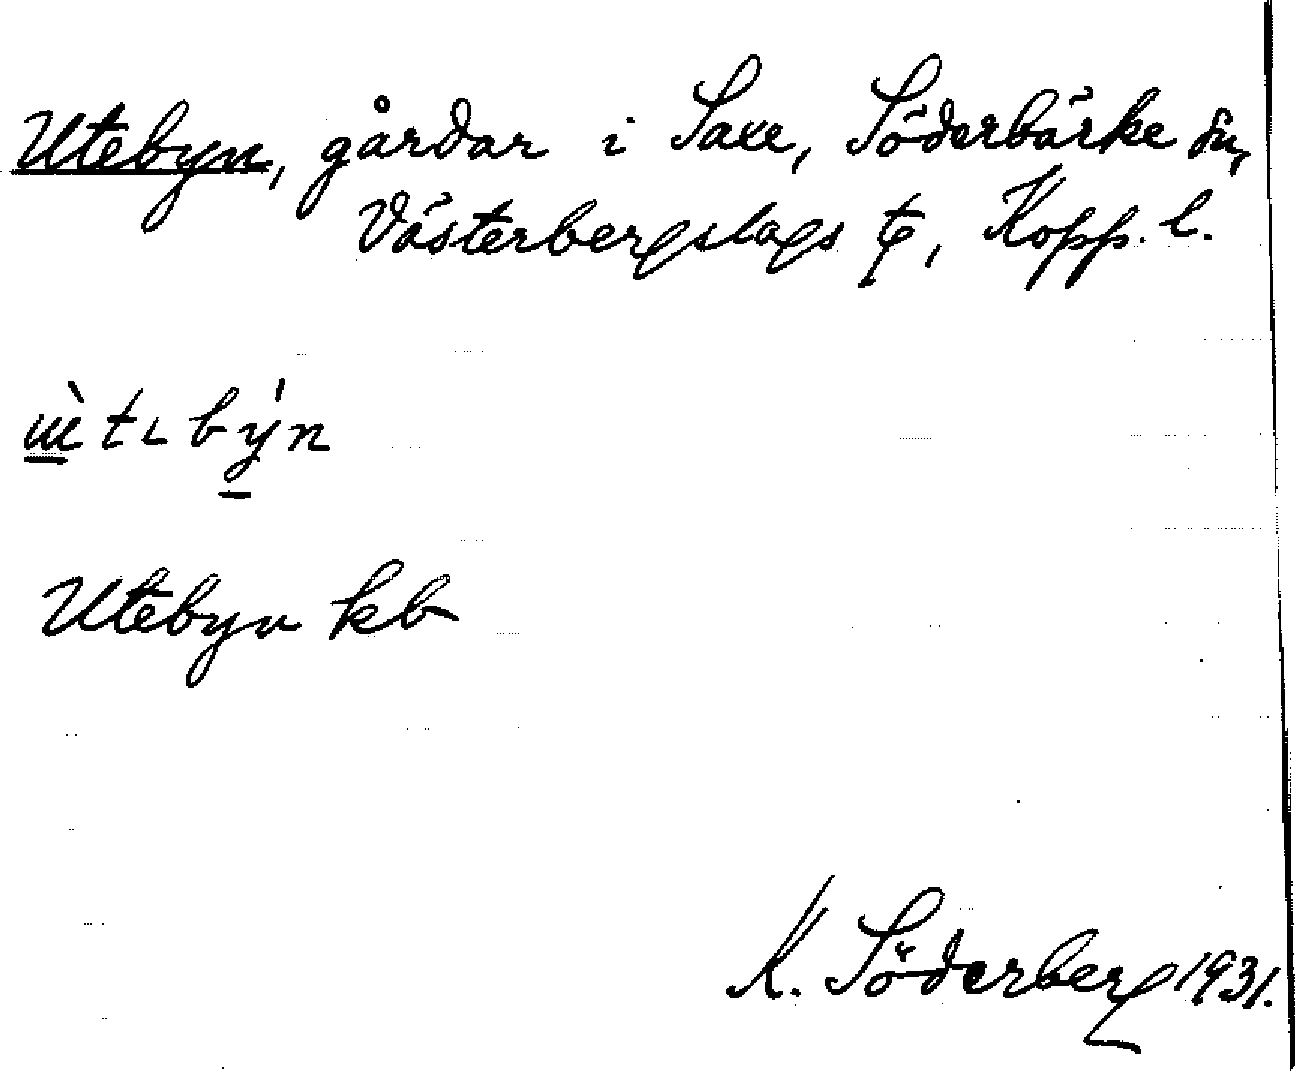 Utebyn, gårdar i Saxe, Söderbärke sn,
Västerbergslags tg, Kopp. l.
Utebyn kb
K. Söderberg 1931.